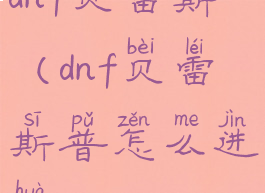 dnf贝雷斯
bèi léi
(dnf贝雷
sī pǔ zěn me jìn
斯普怎么进
huà